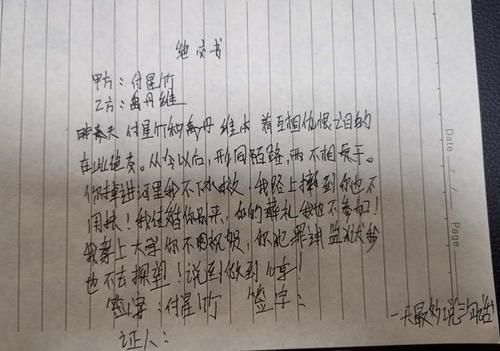 绝交书
甲方：付星竹
乙方：禹丹维
付星竹和禹丹维本着互相仇恨之目的
在此绝交。从今以后，形同陌路，两不相关于。
你掉进河里我不下水救，我路上撞到你也不
用扶！我结婚你别来，你的葬礼我也不参加！
我考上大学你不用祝贺，你犯罪进监狱我
也不去探望！说到做到！
签字：付星竹 签字：
证人：
一天最多说三句话
Date
Page